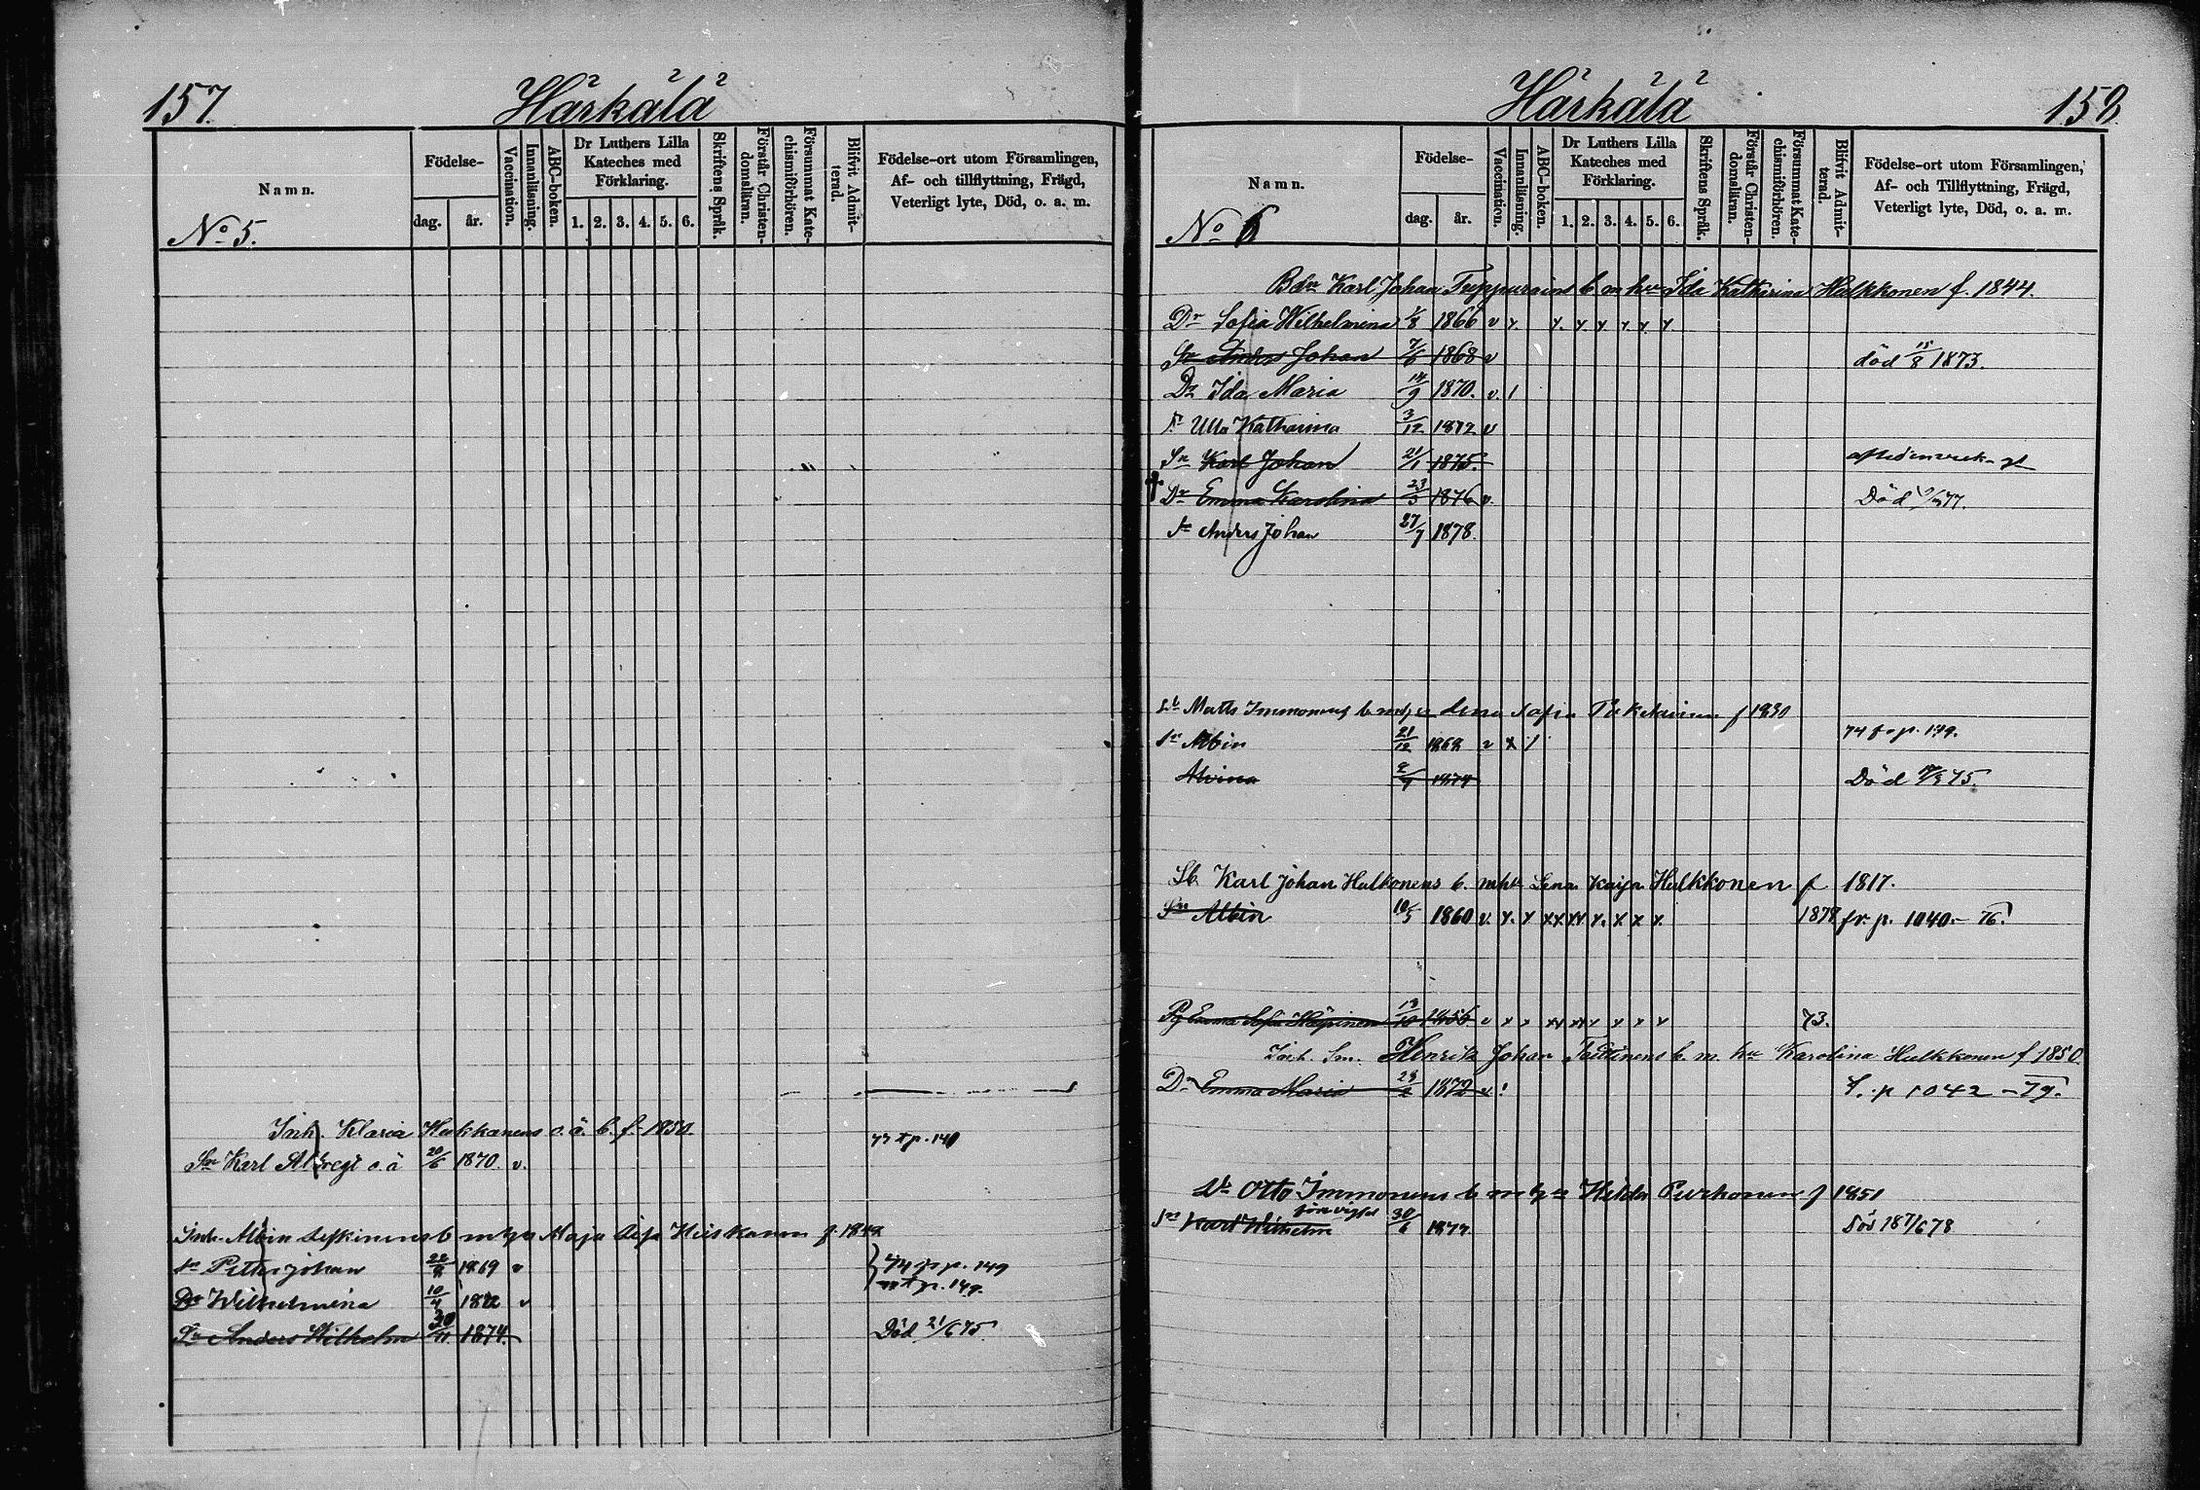 157.
Härkälä
Namn.
Födelse-
dag.
år.
Vaccination.
Innanläsning.
ABC-boken.
Dr Luthers Lilla
Kateches med
Förklaring.
1. 2. 3. 4. 5. 6.
Skriftens Språk.
Förstår Christen-
domsläran.
Försummat Kate-
chismiförhören.
Blifvit Admit-
terad.
Födelse-ort utom Församlingen,
Af- och tillflyttning, Frägd,
Veterligt lyte, Död, o. a. m.
No 5.
Inh. Maria o. ä. b. f. 1850.
Sn Karl o. ä 20/6 1870. v.
Inh. Albin b m Maja f.
Sn Petter Johan 1869 v
74 fr p. 149
p. 149.
Dr Wilhelmina 10/4 1872 v
Sn Anders Wilhelm 30/11 1874.
Död 21/6 75.
Härkälä
158.
Namn.
Födelse-
dag.
år.
Vaccination.
Innanläsning.
ABC-boken.
Dr Luthers Lilla
Kateches med
Förklaring.
1. 2. 3. 4. 5. 6.
Skriftens Språk.
Förstår Christen-
domsläran.
Försummat Kate-
chismiförhören.
Blifvit Admit-
terad.
Födelse-ort utom Församlingen,
Af- och Tillflyttning, Frägd,
Veterligt lyte, Död, o. a. m.
No 6
Bdn Karl Johan b m hu Ida Katharina Hulkkonen f. 1844.
Dr Sofia Wilhelmina 1/8 1866 v x x x x x x x
Sn Anders Johan 7/6 1868 v död 15/8 1873.
Dr Ida Maria 14/9 1870. v. /
Dr Ulla Katharina 3/12 1872 v
Sn Karl Johan 21/1 1875.
Dr Emma Karolina 23/3 1876 v. Död
Sn Anders Johan 27/7 1878.
Matts Immonens b m Lena Sofia f 1830
Sn Albin 21/12 v x / 74 fr p. 149.
Alvina Död 75.
Lb. Karl Johan Hulkonens b. m hu Lena Kaisa Hulkkonen f 1817.
Sn Albin 10/5 1860 v. x. x xx xx x. x x x. 1878 fr. p. 1040. - 76.
Pig Emma Sofia 1856 v x x xx xx x x x 73.
Inh. Sn. Henrik Johan b. m. hu Karolina Hulkkonen f 1850.
Dr Emma Maria 1872 v ! p 1042 - 79.
Otto Immonens b m Hilda f 1851
Sn Karl Wilhelm 30/6 1877. Död